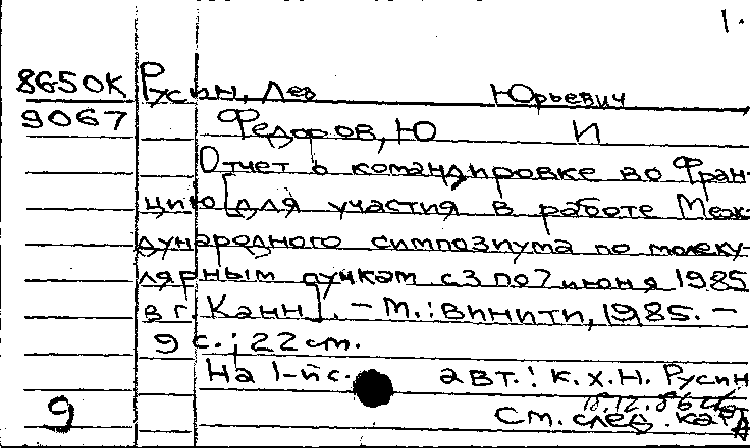 1.
8650К Русин, Лев Юрьевич
9067 Федоров, Ю И
Отчет о командировке во Фран-
цию [для участия в работе Меж-
дународного симпозиума по молеку-
лярным пучкам с 3 по 7 июня 1985
в г. Канн]. — М.: ВИНИТИ, 1985. —
9 с.; 22 см.
На 1-й с. авт.: к.х.н. Русин
18.12.86
9 См. след. карт.